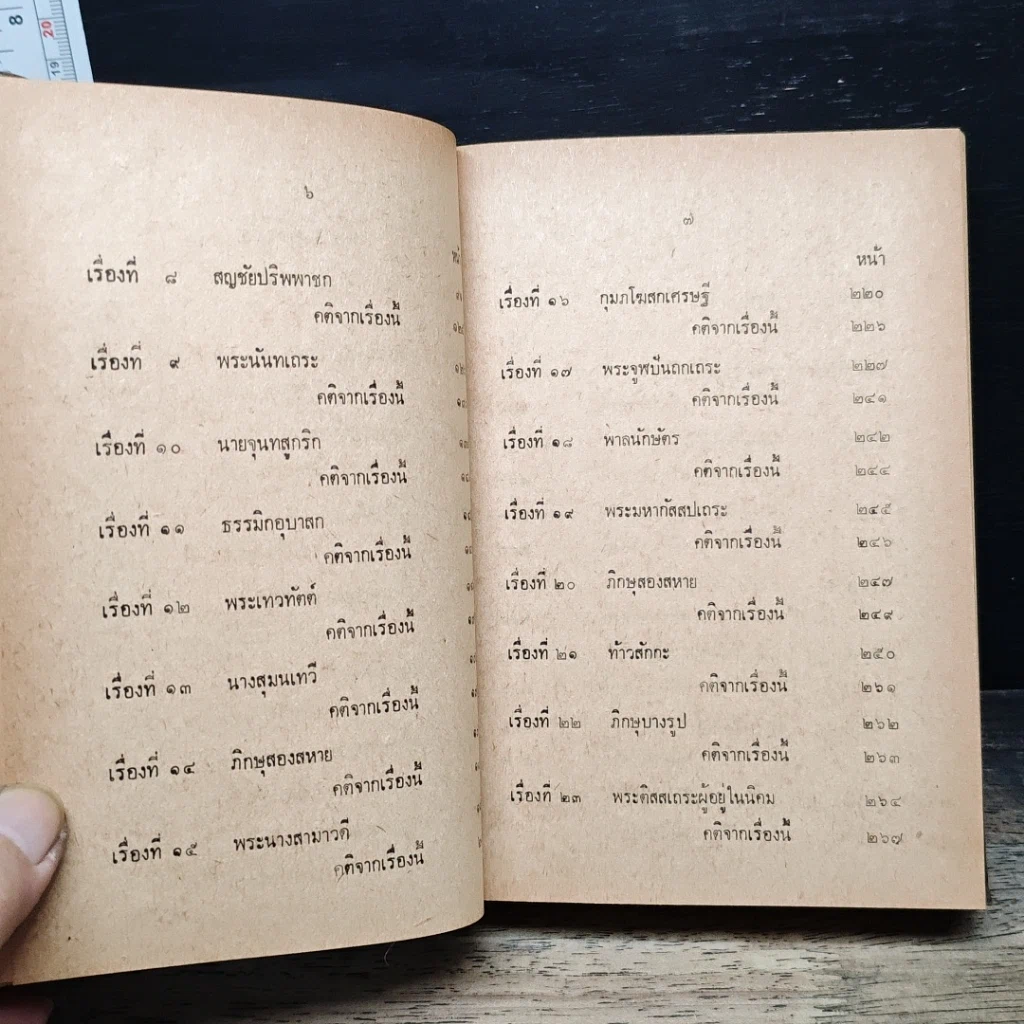 8
20
19
๖
เรื่องที่ ๘ สญชัยปริพพาชก
คติจากเรื่องนี้
เรื่องที่ ๙ พระนันทเถระ
คติจากเรื่องนี้
เรื่องที่ ๑๐ นายจุนทสูกริก
คติจากเรื่องนี้
เรื่องที่ ๑๑ ธรรมิกอุบาสก
คติจากเรื่องนี้
เรื่องที่ ๑๒ พระเทวทัตต์
คติจากเรื่องนี้
เรื่องที่ ๑๓ นางสุมนเทวี
คติจากเรื่องนี้
เรื่องที่ ๑๔ ภิกษุสองสหาย
คติจากเรื่องนี้
เรื่องที่ ๑๕ พระนางสามาวดี
คติจากเรื่องนี้
๗
หน้า
เรื่องที่ ๑๖ กุมภโฆสกเศรษฐี ๒๒๐
คติจากเรื่องนี้ ๒๒๖
เรื่องที่ ๑๗ พระจูฬปันถกเถระ ๒๒๗
คติจากเรื่องนี้ ๒๔๑
เรื่องที่ ๑๘ พาลนักษัตร ๒๔๒
คติจากเรื่องนี้ ๒๔๔
เรื่องที่ ๑๙ พระมหากัสสปเถระ ๒๔๕
คติจากเรื่องนี้ ๒๔๖
เรื่องที่ ๒๐ ภิกษุสองสหาย ๒๔๗
คติจากเรื่องนี้ ๒๔๙
เรื่องที่ ๒๑ ท้าวสักกะ ๒๕๐
คติจากเรื่องนี้ ๒๖๑
เรื่องที่ ๒๒ ภิกษุบางรูป ๒๖๒
คติจากเรื่องนี้ ๒๖๓
เรื่องที่ ๒๓ พระติสสเถระผู้อยู่ในนิคม ๒๖๔
คติจากเรื่องนี้ ๒๖๗